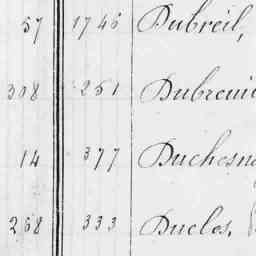 57 1746 Dubreil,
308 251 Dubreui
14 377 Duchesn
268 333 Duclos,